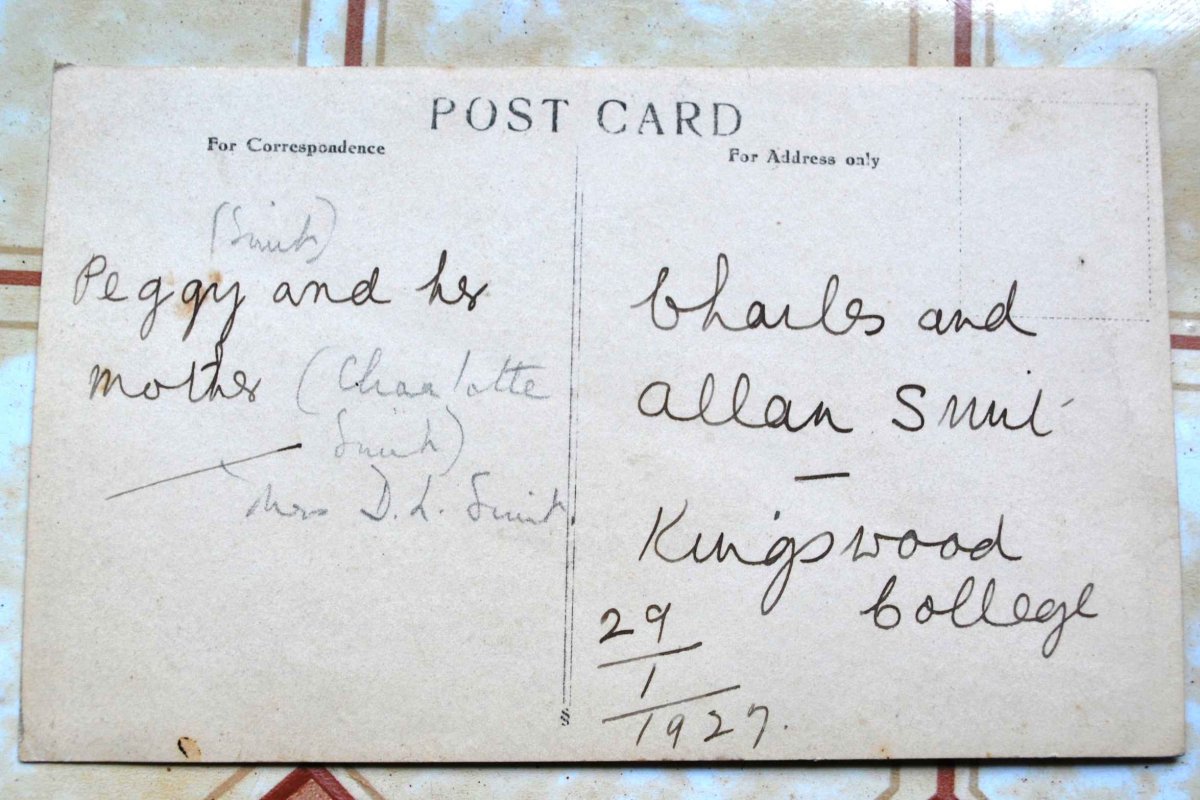 POST CARD
For Correspondence
For Address only
(Smit)
Peggy and her
mother (Charlotte
Smit)
Mrs D. L. Smit
Charles and
Allan Smit
—
Kingswood
College
29
1
1927.
S